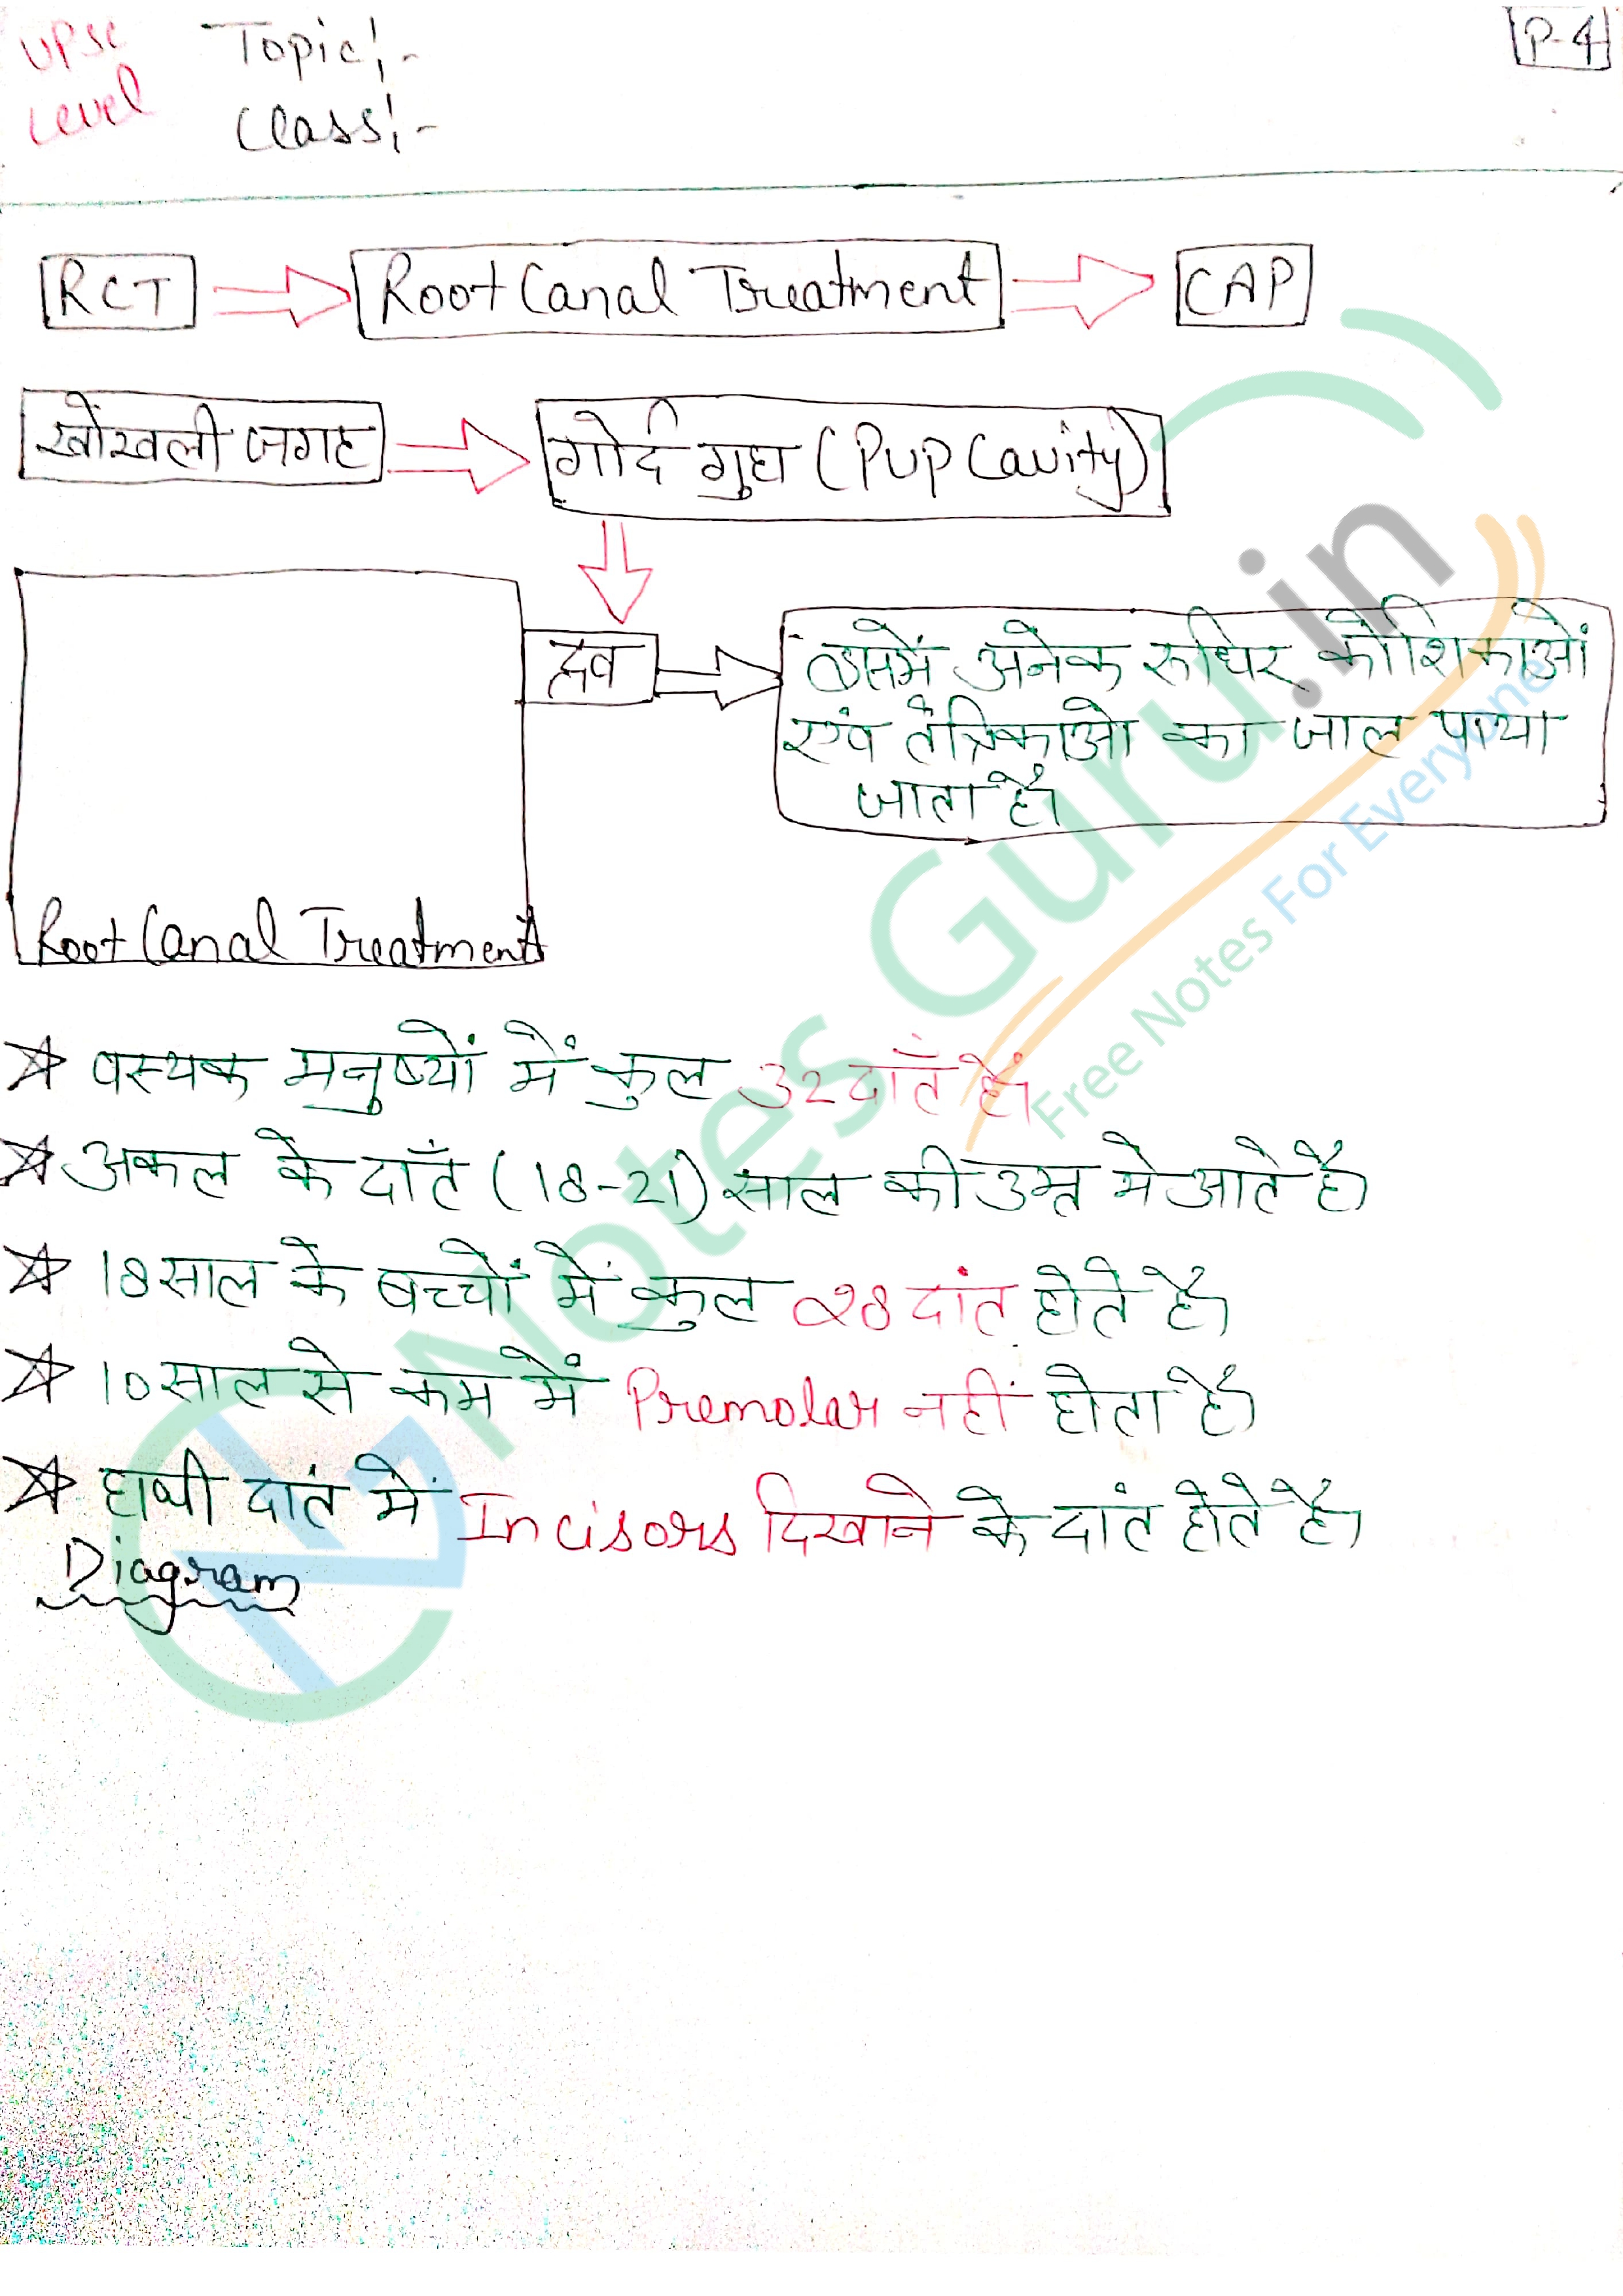 UPSC Level
Topic:-
Class:-
P-4
RCT
Root Canal Treatment
CAP
खोंखली जगह
गोर्द गुघ (Pup Cavity)
द्रव
इसमें अनेक रुधिर कोशिकाओं
एवं तंत्रिकाओ का जाल पाया
जाता है।
Root Canal Treatment
वस्यक मनुष्यों में कुल 32 दाँत है।
अकल के दाँत (18-21) साल की उम्र मे आते है।
18 साल के बच्चों में कुल 28 दांत होते है।
10 साल से कम में Premolar नहीं होता है।
हाथी दांत में Incisors दिखाने के दांत होते है।
Diagram
Notes Guru.in
Free Notes For Everyone